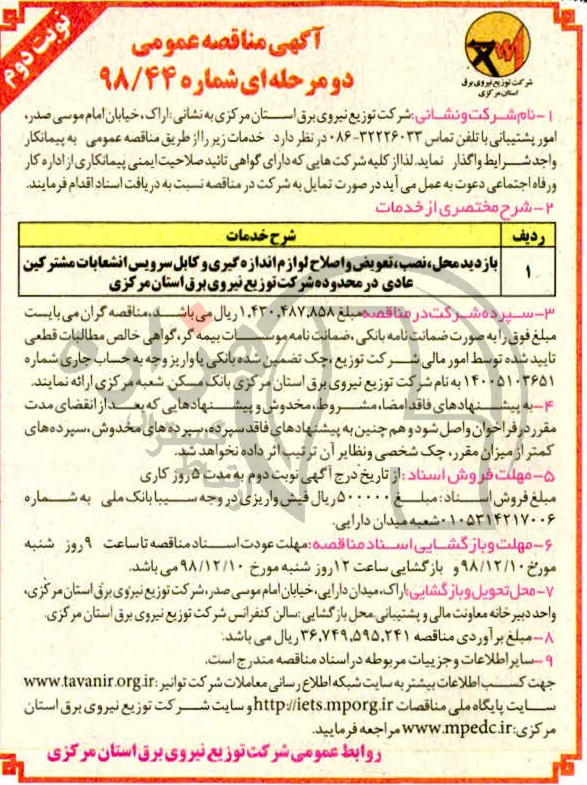 نوبت دوم
آگهی مناقصه عمومی
دو مرحله ای شماره ۹۸/۴۴
شرکت توزیع نیروی برق
استان مرکزی
۱-نام شرکت و نشانی: شرکت توزیع نیروی برق استان مرکزی به نشانی: اراک، خیابان امام موسی صدر،
امور پشتیبانی با تلفن تماس ۳۲۲۲۶۰۳۳-۰۸۶ در نظر دارد خدمات زیر را از طریق مناقصه عمومی به پیمانکار
واجد شرایط واگذار نماید. لذا از کلیه شرکت هایی که دارای گواهی تائید صلاحیت ایمنی پیمانکاری از اداره کار
و رفاه اجتماعی دعوت به عمل می آید در صورت تمایل به شرکت در مناقصه نسبت به دریافت اسناد اقدام فرمایند.
۲-شرح مختصری از خدمات
ردیف شرح خدمات
۱ بازدید محل، نصب، تعویض و اصلاح لوازم اندازه گیری و کابل سرویس انشعابات مشترکین
عادی در محدوده شرکت توزیع نیروی برق استان مرکزی
۳-سپرده شرکت در مناقصه مبلغ ۱،۴۳۰،۴۸۷،۸۵۸ ریال می باشد، مناقصه گران می بایست
مبلغ فوق را به صورت ضمانت نامه بانکی، ضمانت نامه موسسات بیمه گر، گواهی خالص مطالبات قطعی
تایید شده توسط امور مالی شرکت توزیع، چک تضمین شده بانکی یا واریز وجه به حساب جاری شماره
۱۴۰۰۵۱۰۳۶۵۱ به نام شرکت توزیع نیروی برق استان مرکزی بانک مسکن شعبه مرکزی ارائه نمایند.
۴-به پیشنهادهای فاقد امضا، مشروط، مخدوش و پیشنهادهایی که بعد از انقضای مدت
مقرر در فراخوان واصل شود و هم چنین به پیشنهادهای فاقد سپرده، سپرده های مخدوش، سپرده های
کمتر از میزان مقرر، چک شخصی و نظایر آن ترتیب اثر داده نخواهد شد.
۵-مهلت فروش اسناد: از تاریخ درج آگهی نوبت دوم به مدت ۵ روز کاری
مبلغ فروش اسناد: مبلغ ۵۰۰۰۰۰ ریال فیش واریزی در وجه سیبا بانک ملی به شماره
۰۱۰۵۳۱۴۲۱۷۰۰۶ شعبه میدان دارایی.
۶-مهلت و بازگشایی اسناد مناقصه: مهلت عودت اسناد مناقصه تا ساعت ۹ روز شنبه
مورخ ۹۸/۱۲/۱۰ و بازگشایی ساعت ۱۲ روز شنبه مورخ ۹۸/۱۲/۱۰ می باشد.
۷-محل تحویل و بازگشایی: اراک، میدان دارایی، خیابان امام موسی صدر، شرکت توزیع نیروی برق استان مرکزی،
واحد دبیرخانه معاونت مالی و پشتیبانی. محل بازگشایی: سالن کنفرانس شرکت توزیع نیروی برق استان مرکزی.
۸-مبلغ برآوردی مناقصه ۳۶،۷۴۹،۵۹۵،۲۴۱ ریال می باشد.
۹-سایر اطلاعات و جزییات مربوطه در اسناد مناقصه مندرج است.
جهت کسب اطلاعات بیشتر به سایت شبکه اطلاع رسانی معاملات شرکت توانیر: www.tavanir.org.ir
سایت پایگاه ملی مناقصات http://iets.mporg.ir و سایت شرکت توزیع نیروی برق استان
مرکزی: www.mpedc.ir مراجعه فرمایید.
روابط عمومی شرکت توزیع نیروی برق استان مرکزی